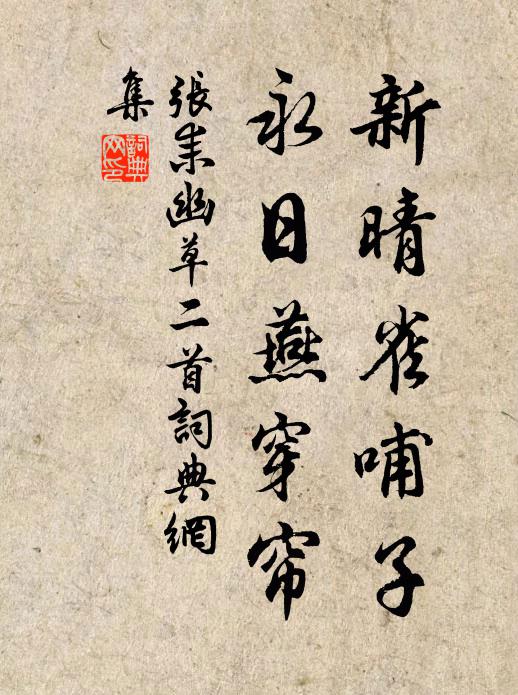 新晴雀哺子
永日燕穿帘
張耒幽草二首詞典網
集
詞典
网印